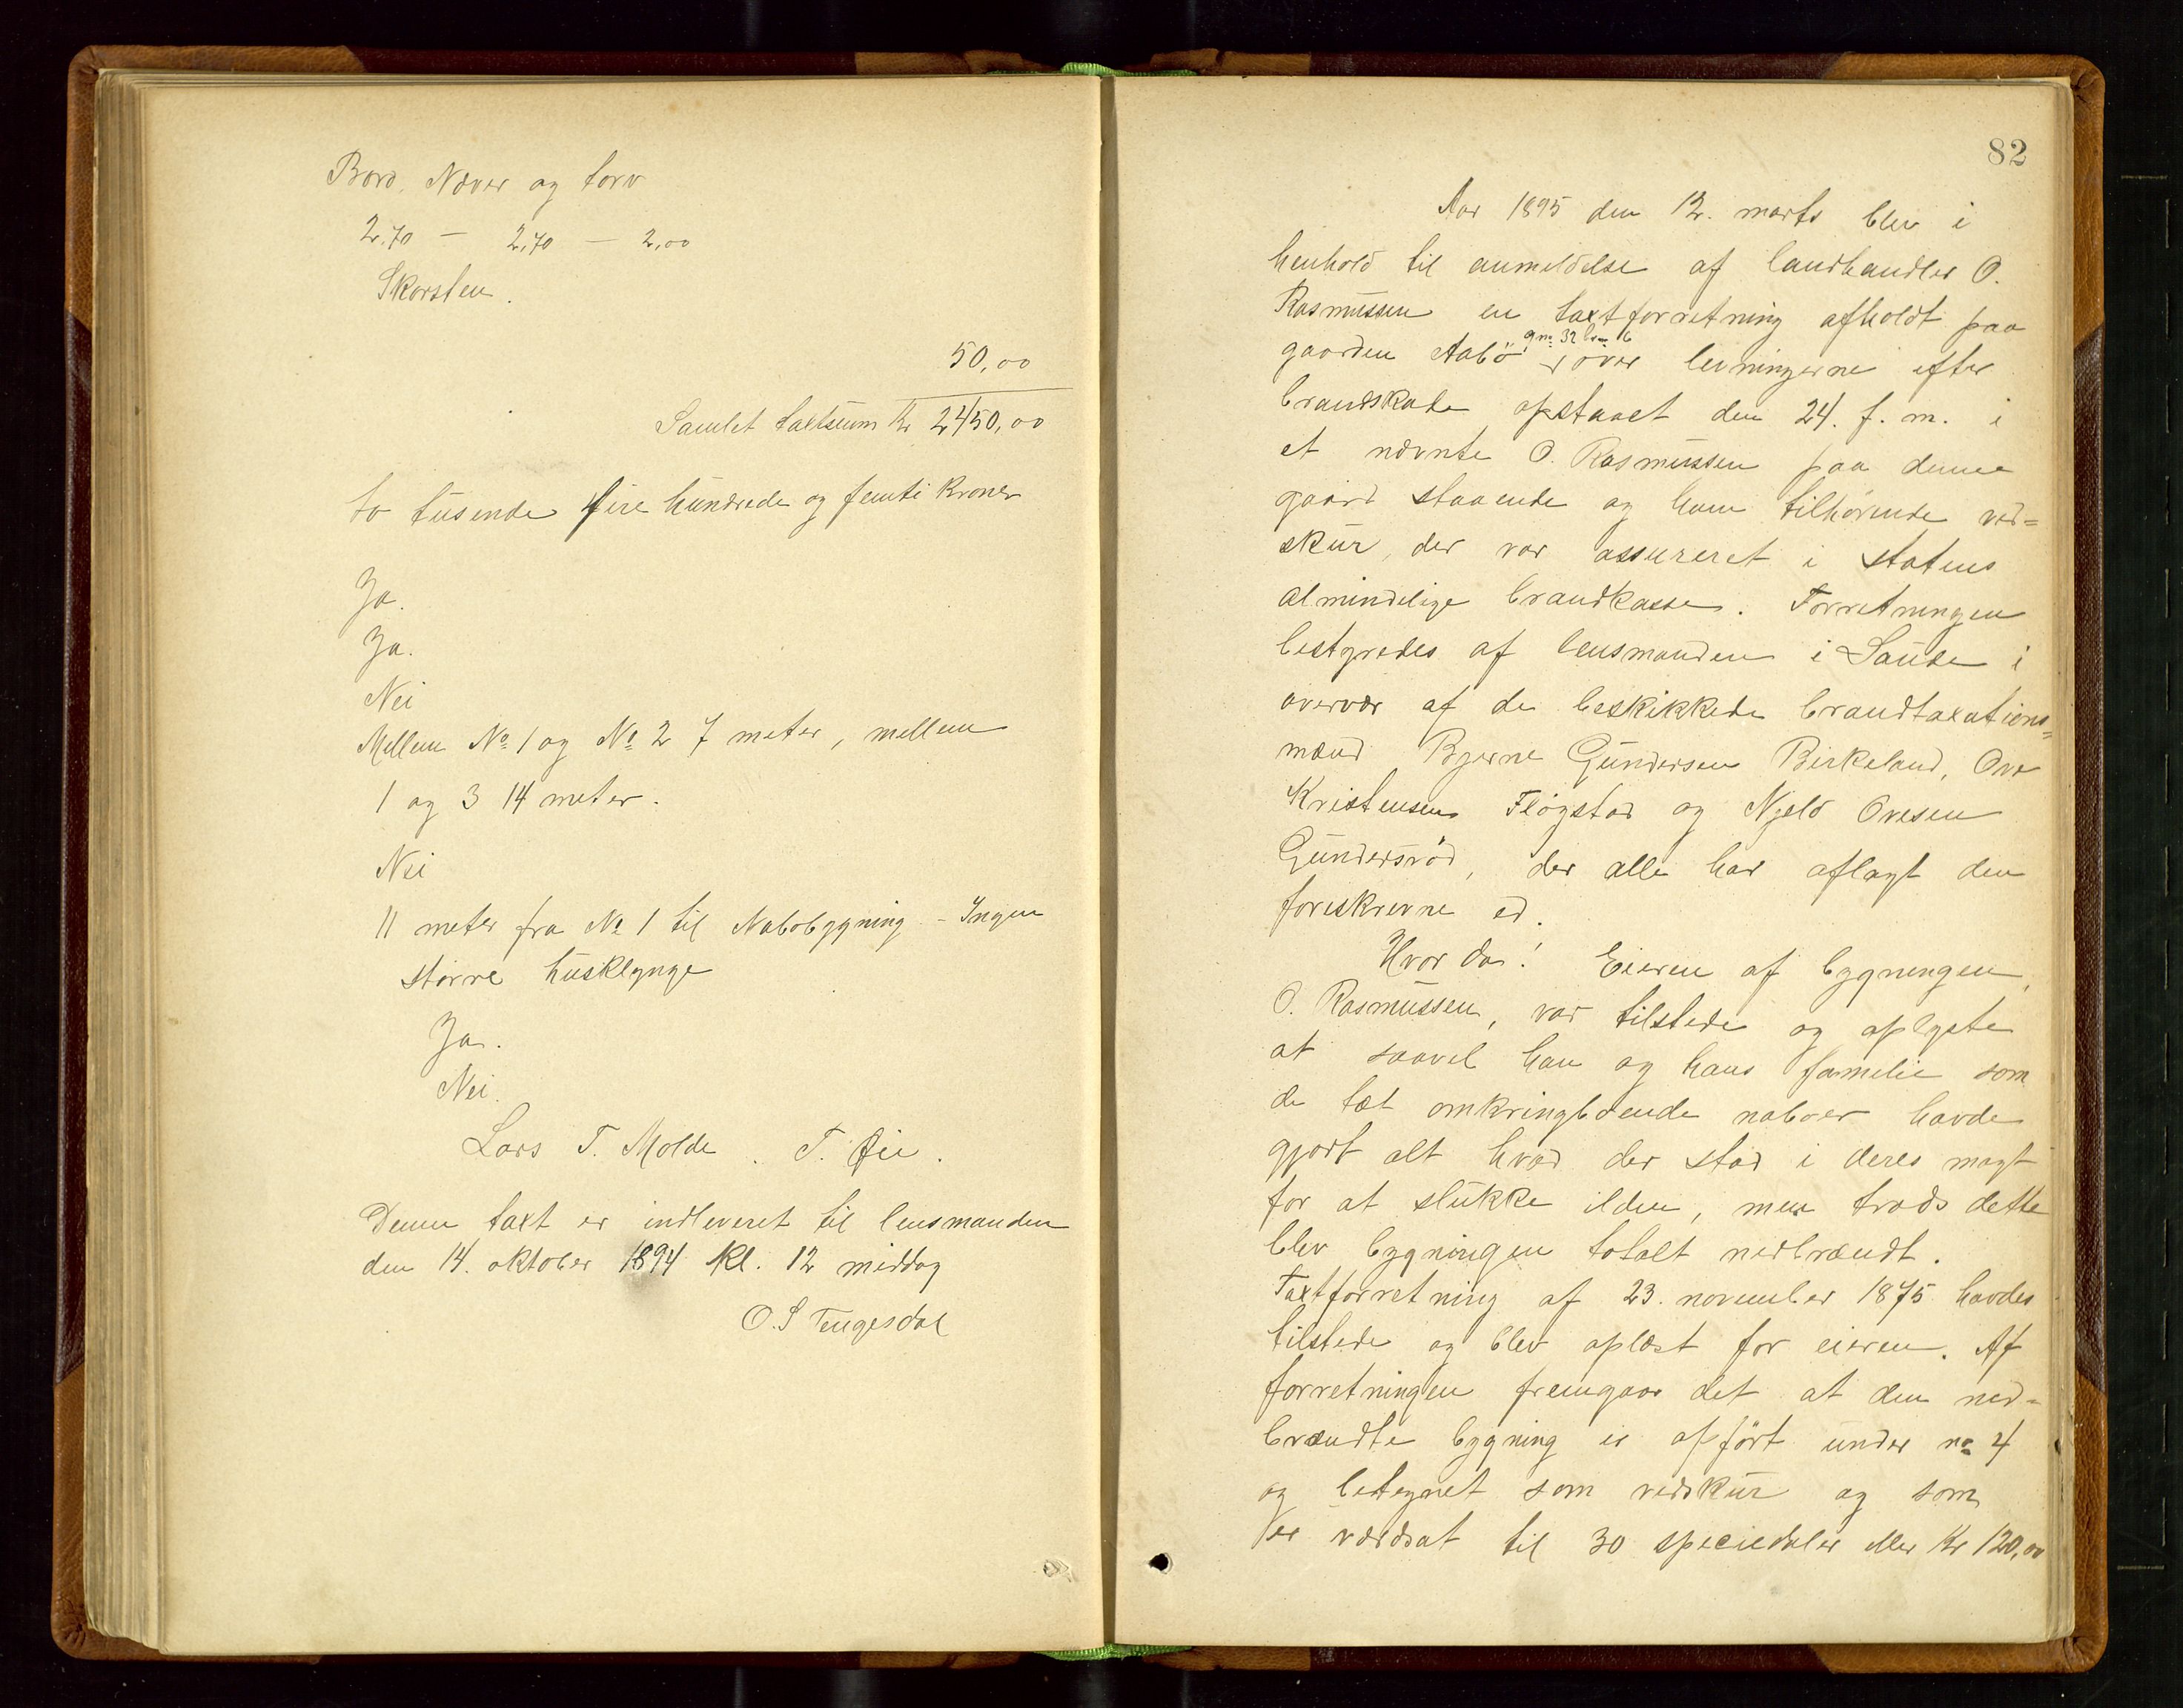 Bord, Næver og torv
2,70 – 2,70 – 2,00
Skorsten.
50,00
Samlet taxtsum Kr 2450,00
to tusende fire hundrede og femti Kroner
Ja.
Ja.
Nei
Mellem No 1 og No 2 7 meter, mellem
1 og 3 14 meter.
Nei
11 meter fra No 1 til Nabobygning – Ingen
større husklynge
Ja.
Nei.
Lars T. Molde . T. Øie .
Denne taxt er indleveret til lensmanden
den 14. oktober 1894 kl. 12 middag
O. S Tengesdal
82
Aar 1895 den 12. marts blev i
henhold til anmeldelse af landhandler O.
Rasmussen en taxtforretning afholdt paa
gno 32 bno 6
gaarden Aabö, over levningerne efter
brandskade opstaaet den 24. f. m. i
et nævnte O. Rasmussen paa denne
gaard staaende og ham tilhørende ved=
skur, der var assureret i statens
almindelige brandkasse. Forretningen
bestyredes af lensmanden i Saude i
overvær af de beskikkede brandtaxations=
mænd Bjerne Gundersen Birkeland, Ove
Kristensen Fløgstad og Njeld Ovesen
Gundersröd, der alle har aflagt den
foreskrevne ed.
Hvorda! Eieren af bygningen,
O. Rasmussen, var tilstede og oplyste
at saavel han og hans familie som
de tæt omkringboende naboer havde
gjort alt hvad der stod i deres magt
for at slukke ilden, men trods dette
blev bygningen totalt nedbrændt.
Taxtforretning af 23. november 1875 havdes
tilstede og blev oplæst for eieren. Af
forretningen fremgaar det at den ned=
brændte bygning er opfört under no 4
og betegnet som vedskur og som
er værdsat til 30 speciedaler eller Kr 120,00